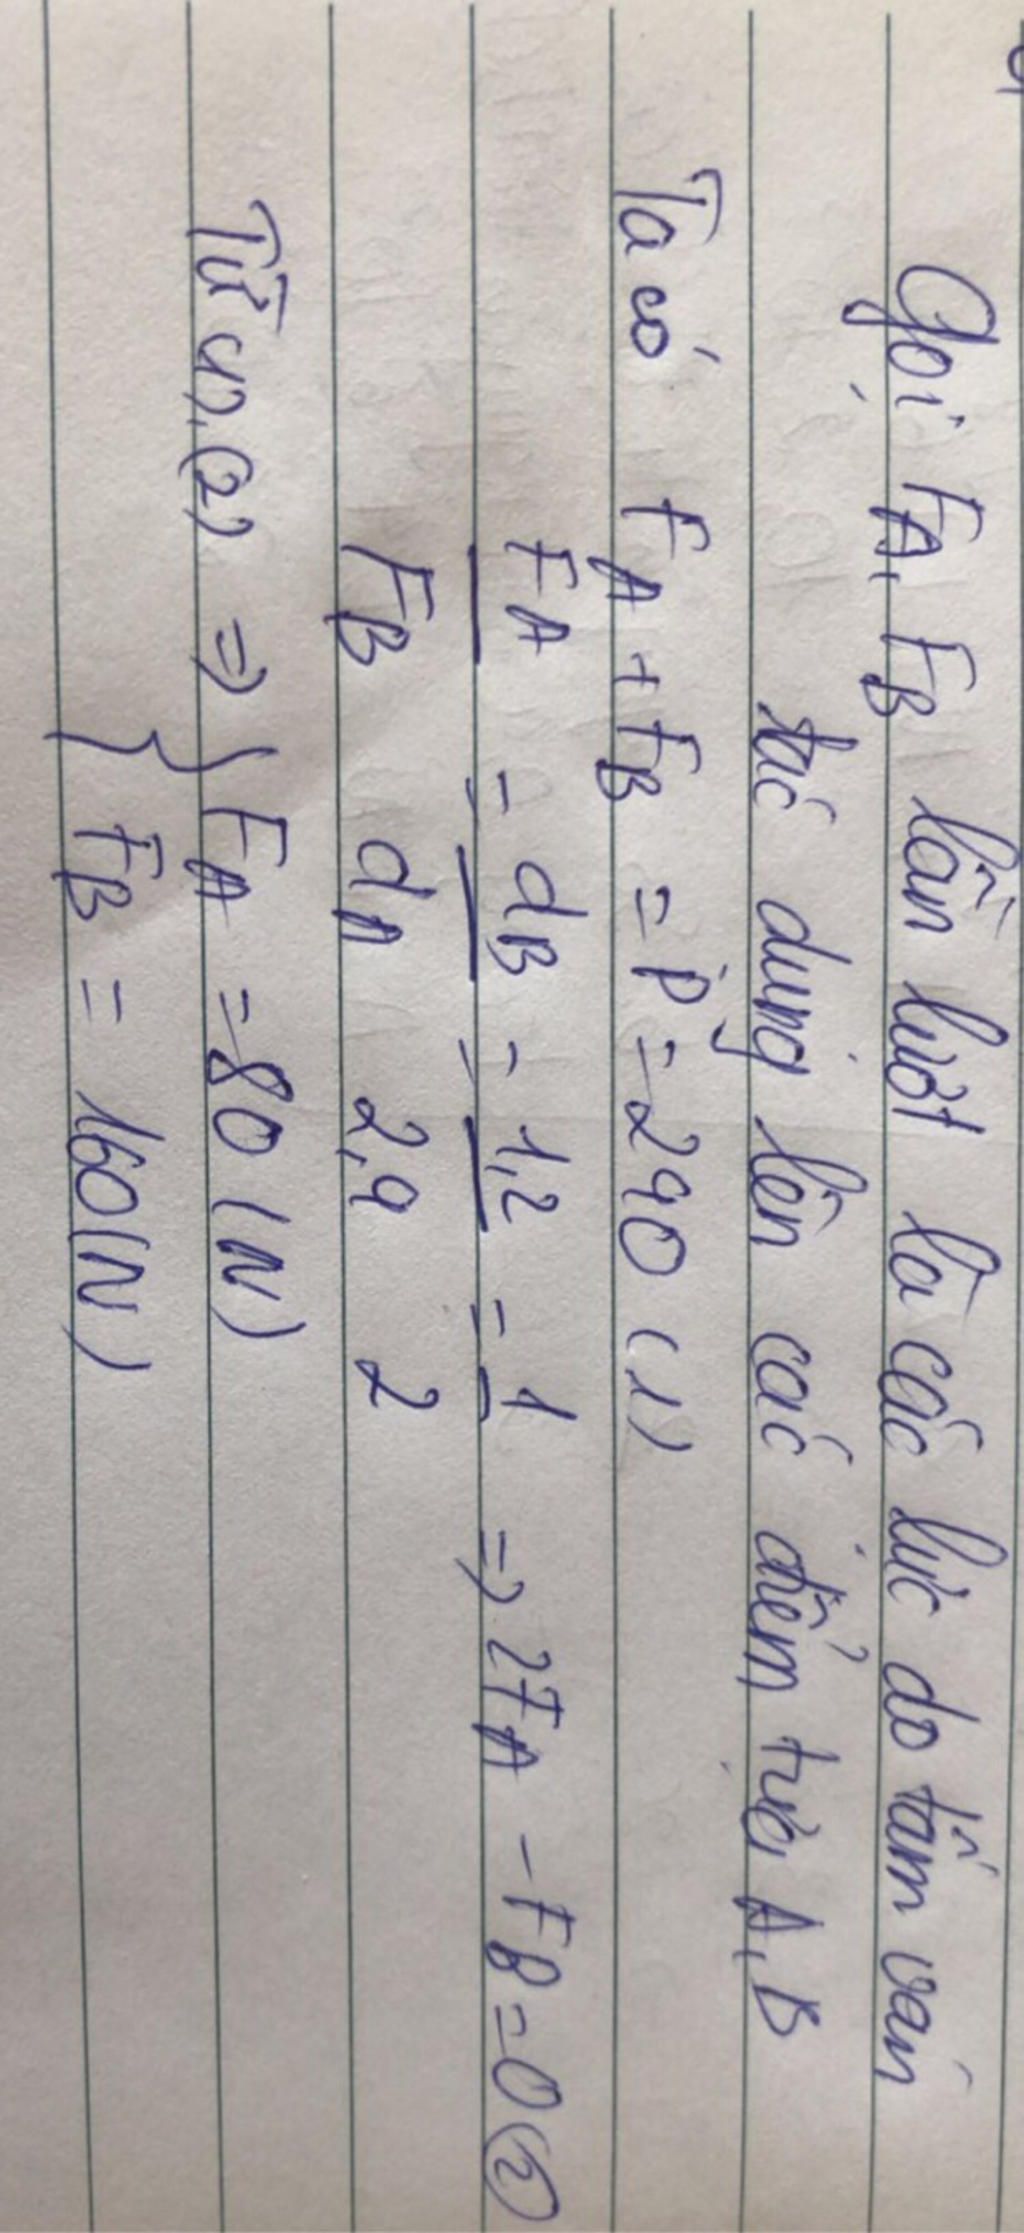 Gọi FA, FB lần lượt là các lực do tấm ván
tác dụng lên các điểm tựa A, B
Ta có FA + FB = P = 240 (1)
FA/FB = dB/dA = 1,2/2,4 = 1/2 => 2FA - FB = 0 (2)
Từ (1), (2) => { FA = 80 (N)
FB = 160 (N)